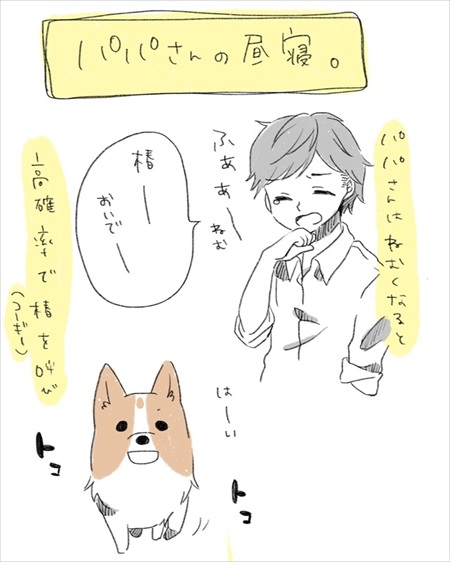 パパさんの昼寝。
パパさんはねむくなると
ふぁあぁーねむ
椿ー
おいでー
高確率で椿を呼び
(コーギー)
はーい
トコ
トコ